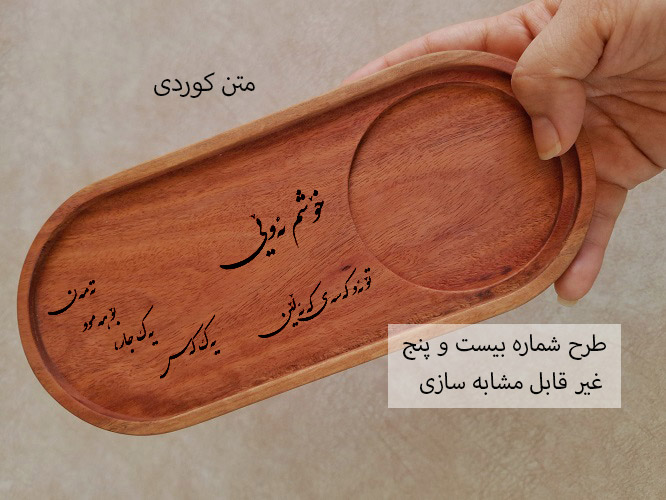 متن کوردی
خۆشم ئەوێی
تۆ ئەو کەسەی کە ئەڵێن
یەک کەس
یەک جار
بۆ هەموو
تەمەن
طرح شماره بیست و پنج
غیر قابل مشابه سازی